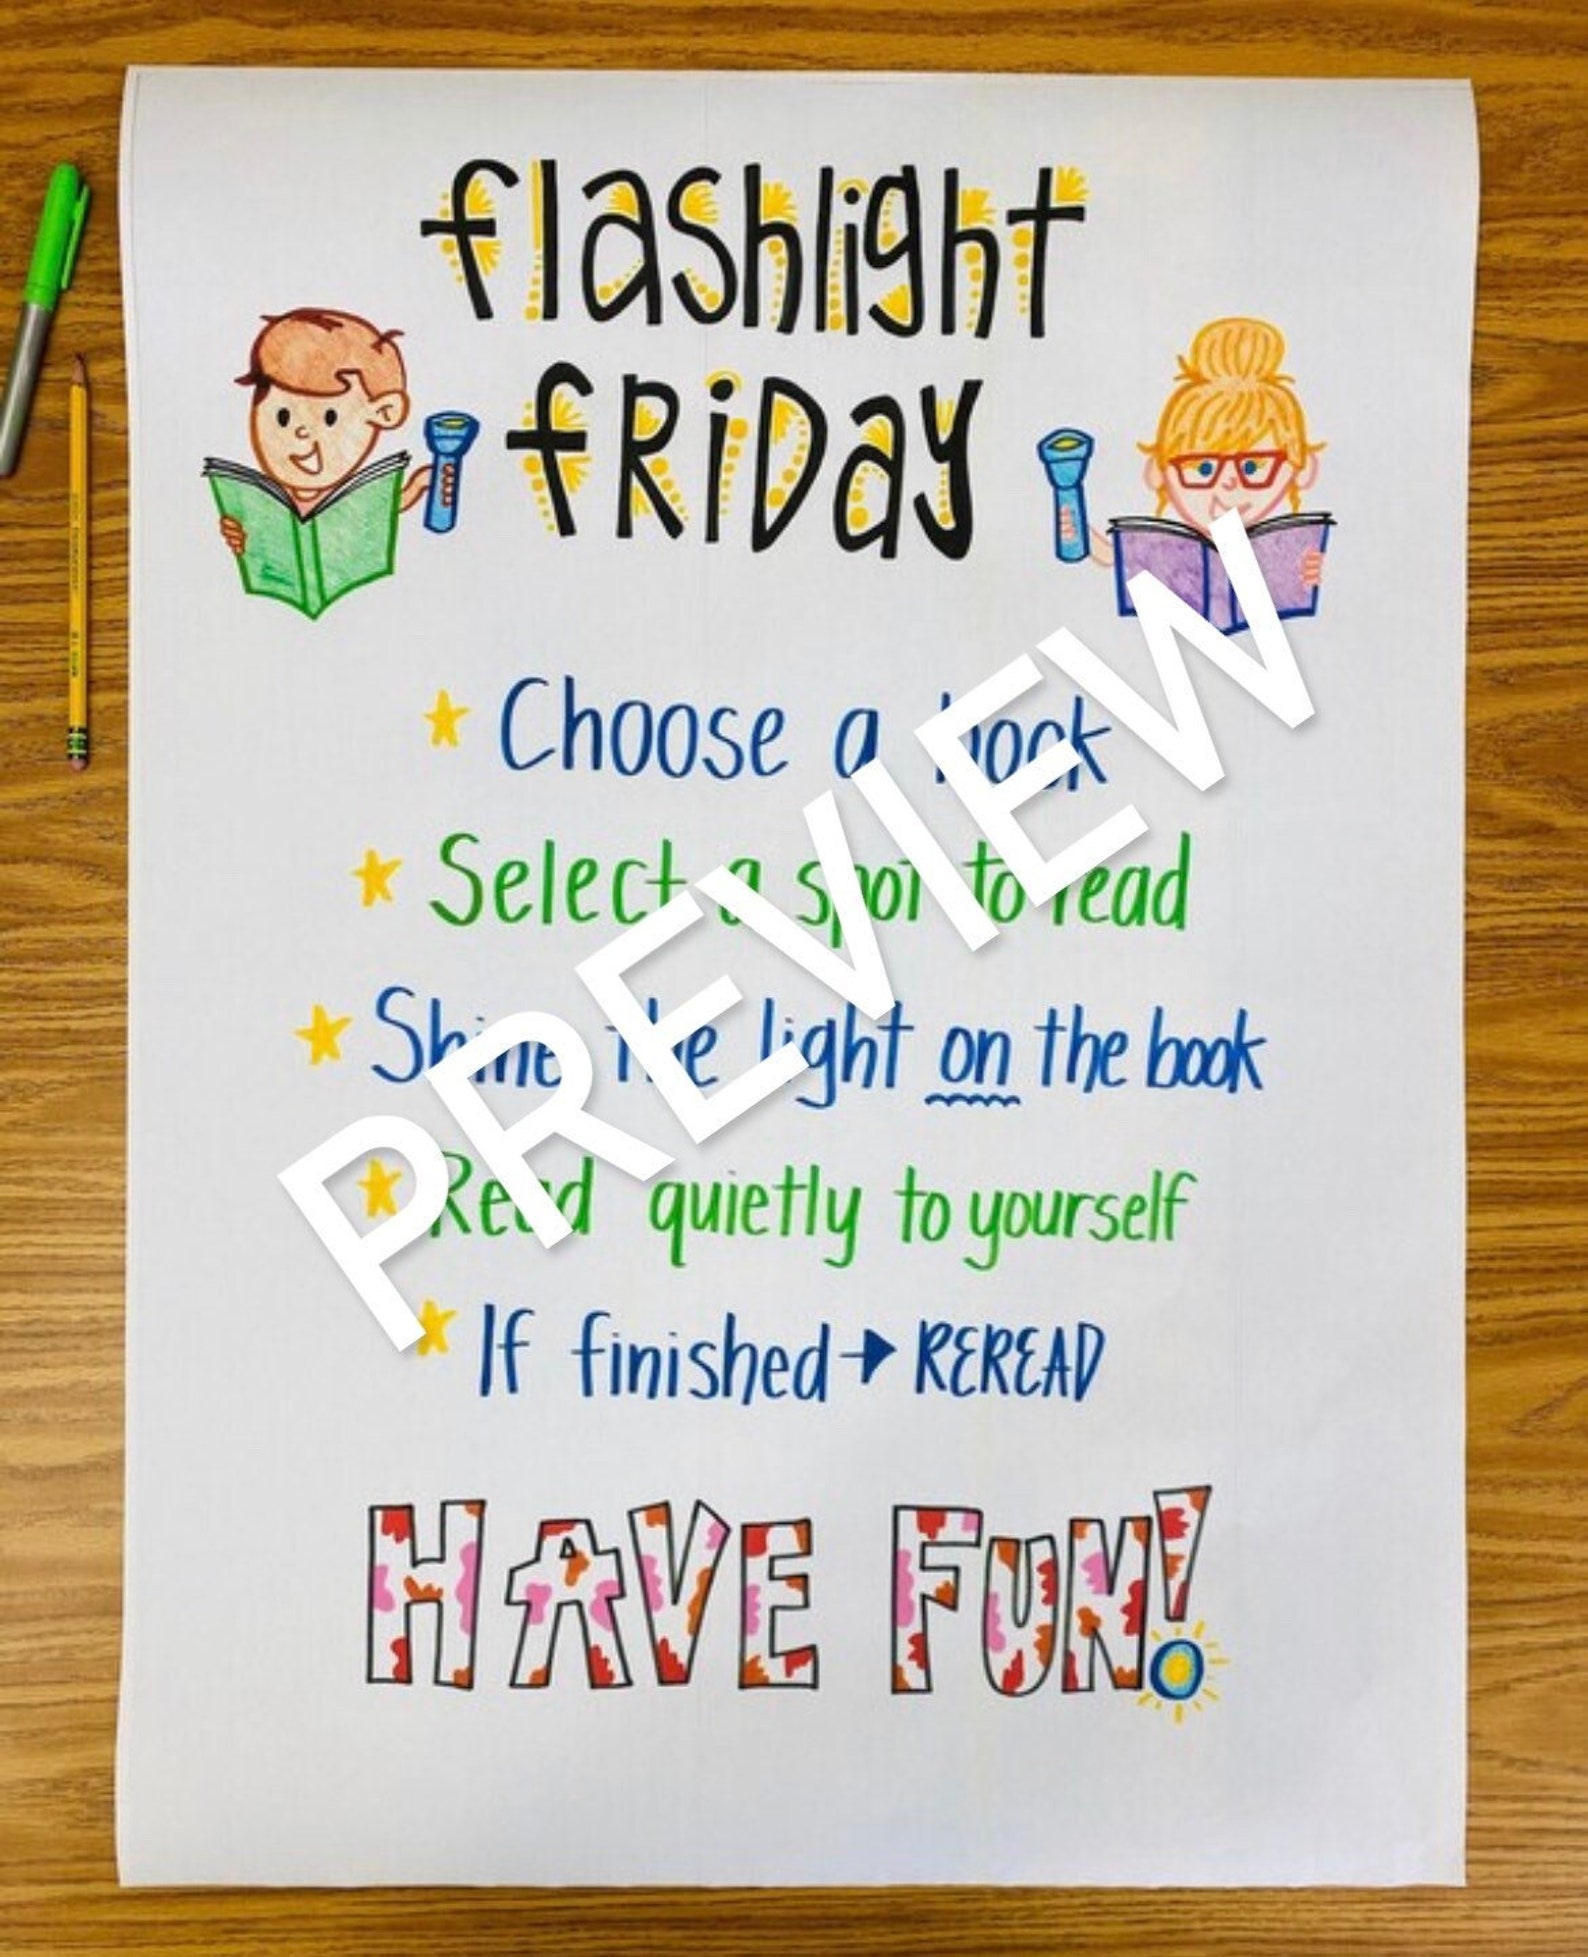 flashlight
FRiDay
Choose a book
Select a spot to read
Shine the light on the book
Read quietly to yourself
If finished → REREAD
HAVE FUN!
PREVIEW